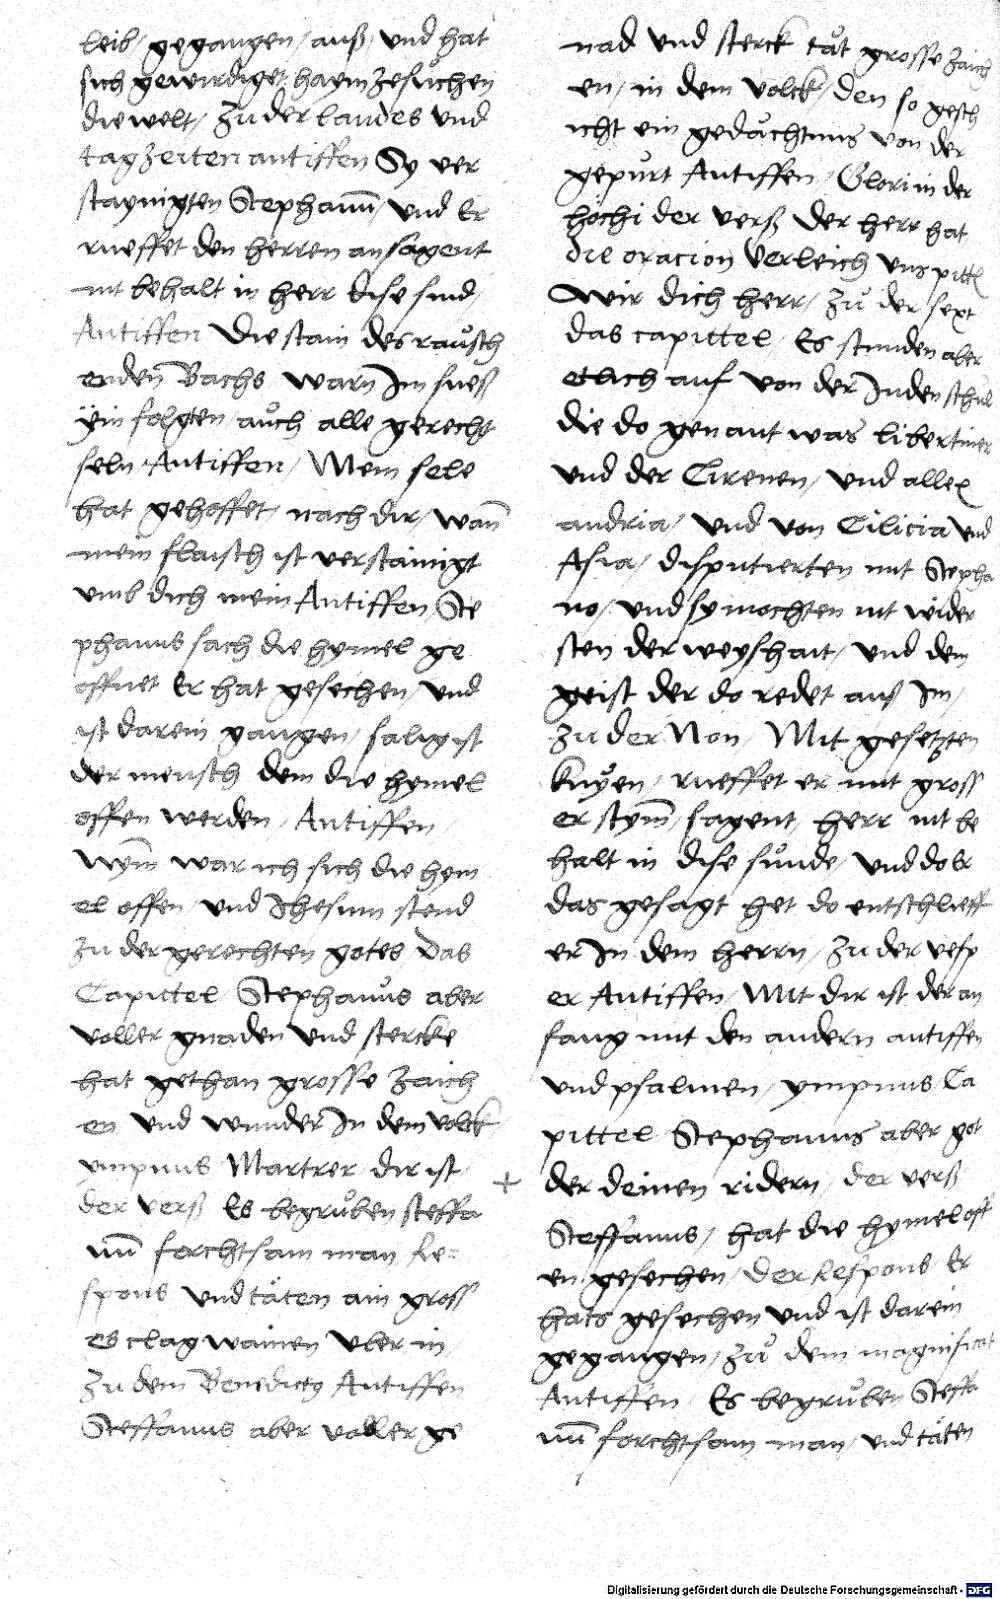 leib / gegangen / auß / und hat
sich gewirdiget haym zesůchen
die welt / Zu der laudes und
tagzeiten antiffen Sy ver
staynigten Stephanū / und Er
rueffet den herren an sagent
nit behalt in herr dise sind /
Antiffen Die stain des raůsch
enden Bachs warn Im sueß
ÿm folgten aůch alle gerecht
seln Antiffen / Mein sele
hat gehoffet / nach dir / wan̄
mein flaisch ist verstainigt
umb dich mein Antiffen Ste
phanus sach die hymel ge
offnet Er hat gesechen / und
ist darein gangen / salig ist
der mensch dem die hymel
offen werden / Antiffen /
Nym̄ war ich sich die hym
el offen / und Jhesum stend
zu der gerechten gotes Das
Capittel Stephanůs aber
voller gnaden und stercke
hat gethan grosse zaich
en und wunder In dem volck
ympnus Martrer dir ist
der verß Es begrůben steffa
nū forchtsam man Re=
spons und täten ain gross
es clag wainen uber in /
Zu dem Benedictus Antiffen
Steffanus aber voller ge
nad und sterck tåt grosse zaich
en / in dem volck / den so gesch
icht ein gedåchtnus von der
gepůrt Antiffen / Glori in der
höchi der verß Der herr hat
die oracion Verleich uns pitt
Wir dich herr / Zů der sext
das capittel Es stunden aber
etlich auf von der Juden schul
die do genant was libertiner
und der Cirenen / und allex
andria / und von Cilicia und
Asia / disputierten mit Stepha
no / und sy mochten nit wider
sten der weyshait / und dem
geist der do redet auß Im /
Zu der Non / Mit gesetzten
knyen / rueffet er mit gross
er stym̄ / sagent / herr nit be
halt in dise sůnde / und do Er
das gesagt het do entschlieff
er In dem herrn / Zu der vesp
er Antiffen / Mit dir ist der an
fang mit den andern antiffen
und psalmen / ympnus Ca
pittel Stephanus aber got
der deinen ridern / der verß
Steffanus / hat die hymel off
en gesechen / der Respons Er
hats gesechen und ist darein
gegangen / zů dem magnificat
Antiffen / Es begrůben Steffa
nū forchtsam man / und täten
Digitalisierung gefördert durch die Deutsche Forschungsgemeinschaft - DFG